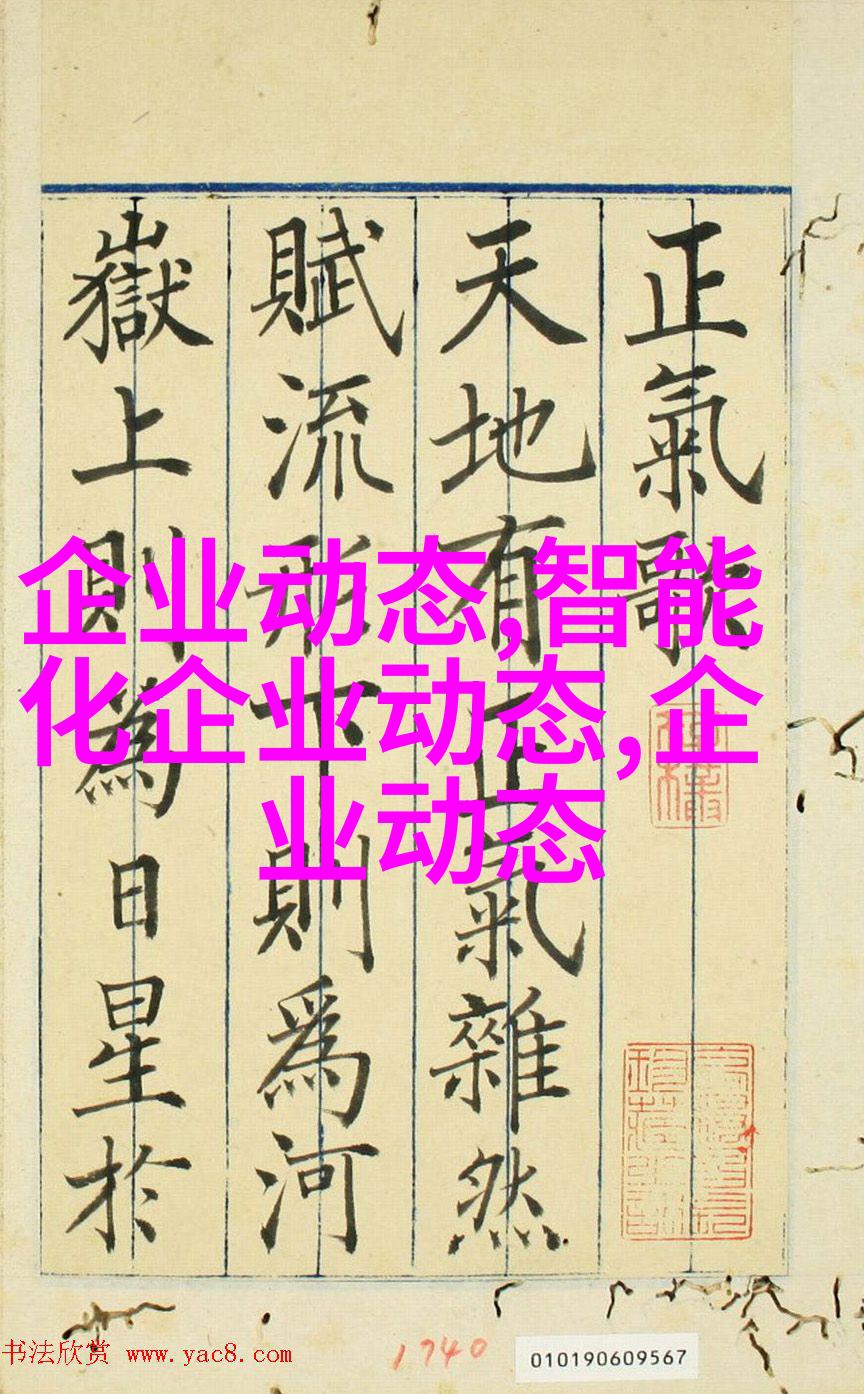 正氣歌
天地有正氣雜然
賦流形下則為河
嶽上則為日星於
企业动态,智能
化企业动态,企
业动态
书法欣赏 www.yac8.com
1740
010190609567